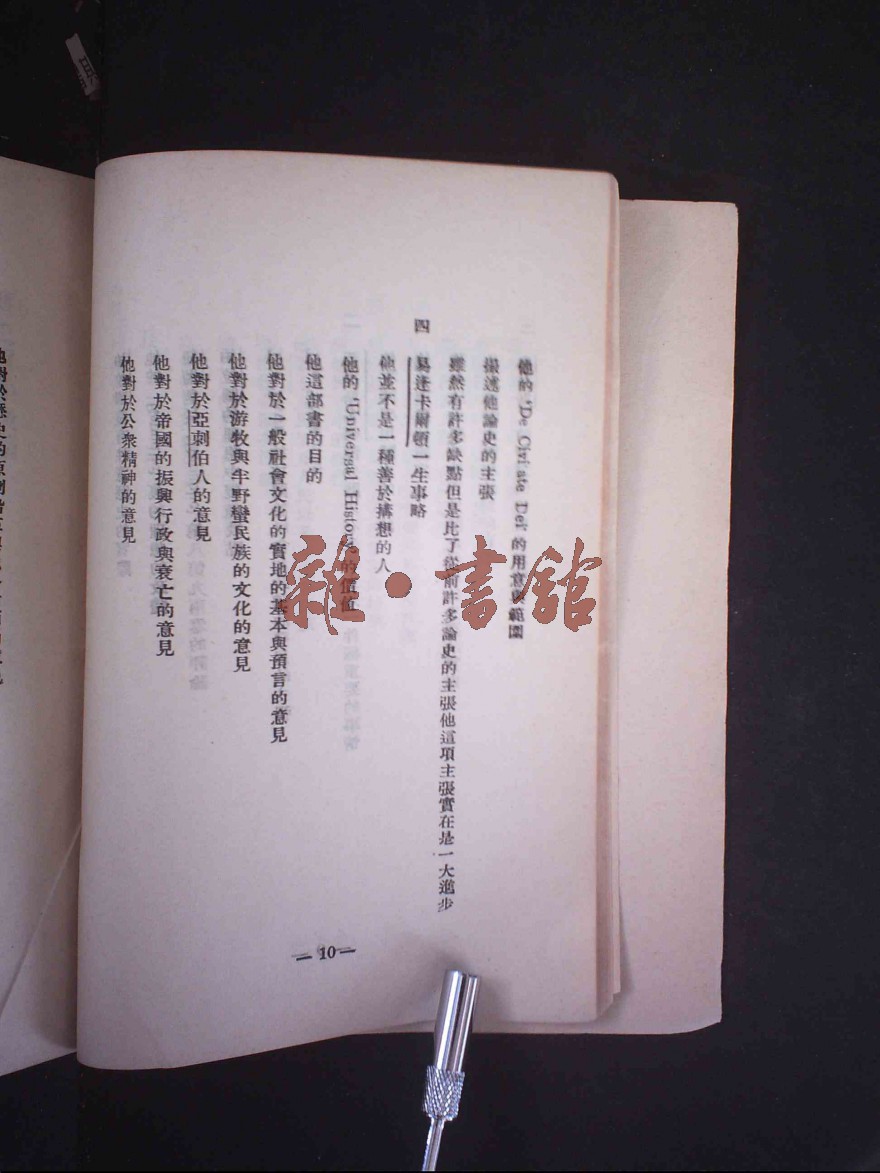 他的 'De Civi ate Dei' 的用意與範圍
撮述他論史的主張
雖然有許多缺點但是比了從前許多論史的主張他這項主張實在是一大進步
四
易逢卡爾頓一生事略
他並不是一種善於搆想的人
他的 'Universal History' 的價値
他這部書的目的
他對於一般社會文化的實地的基本與預言的意見
他對於游牧與半野蠻民族的文化的意見
他對於亞刺伯人的意見
他對於帝國的振興行政與衰亡的意見
他對於公衆精神的意見
— 10 —
雜·書館